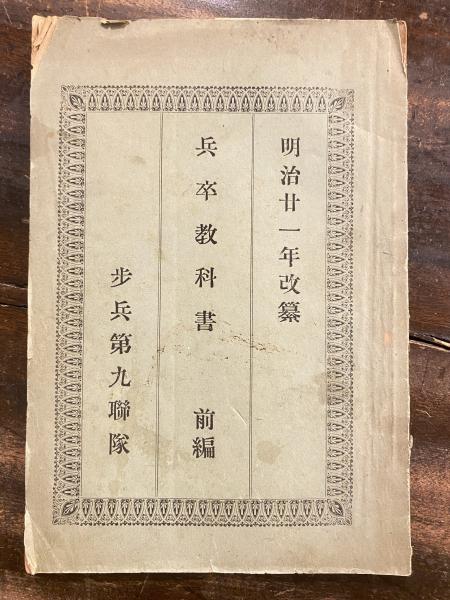 明治廿一年改纂
兵卒教科書　前編
步兵第九聯隊